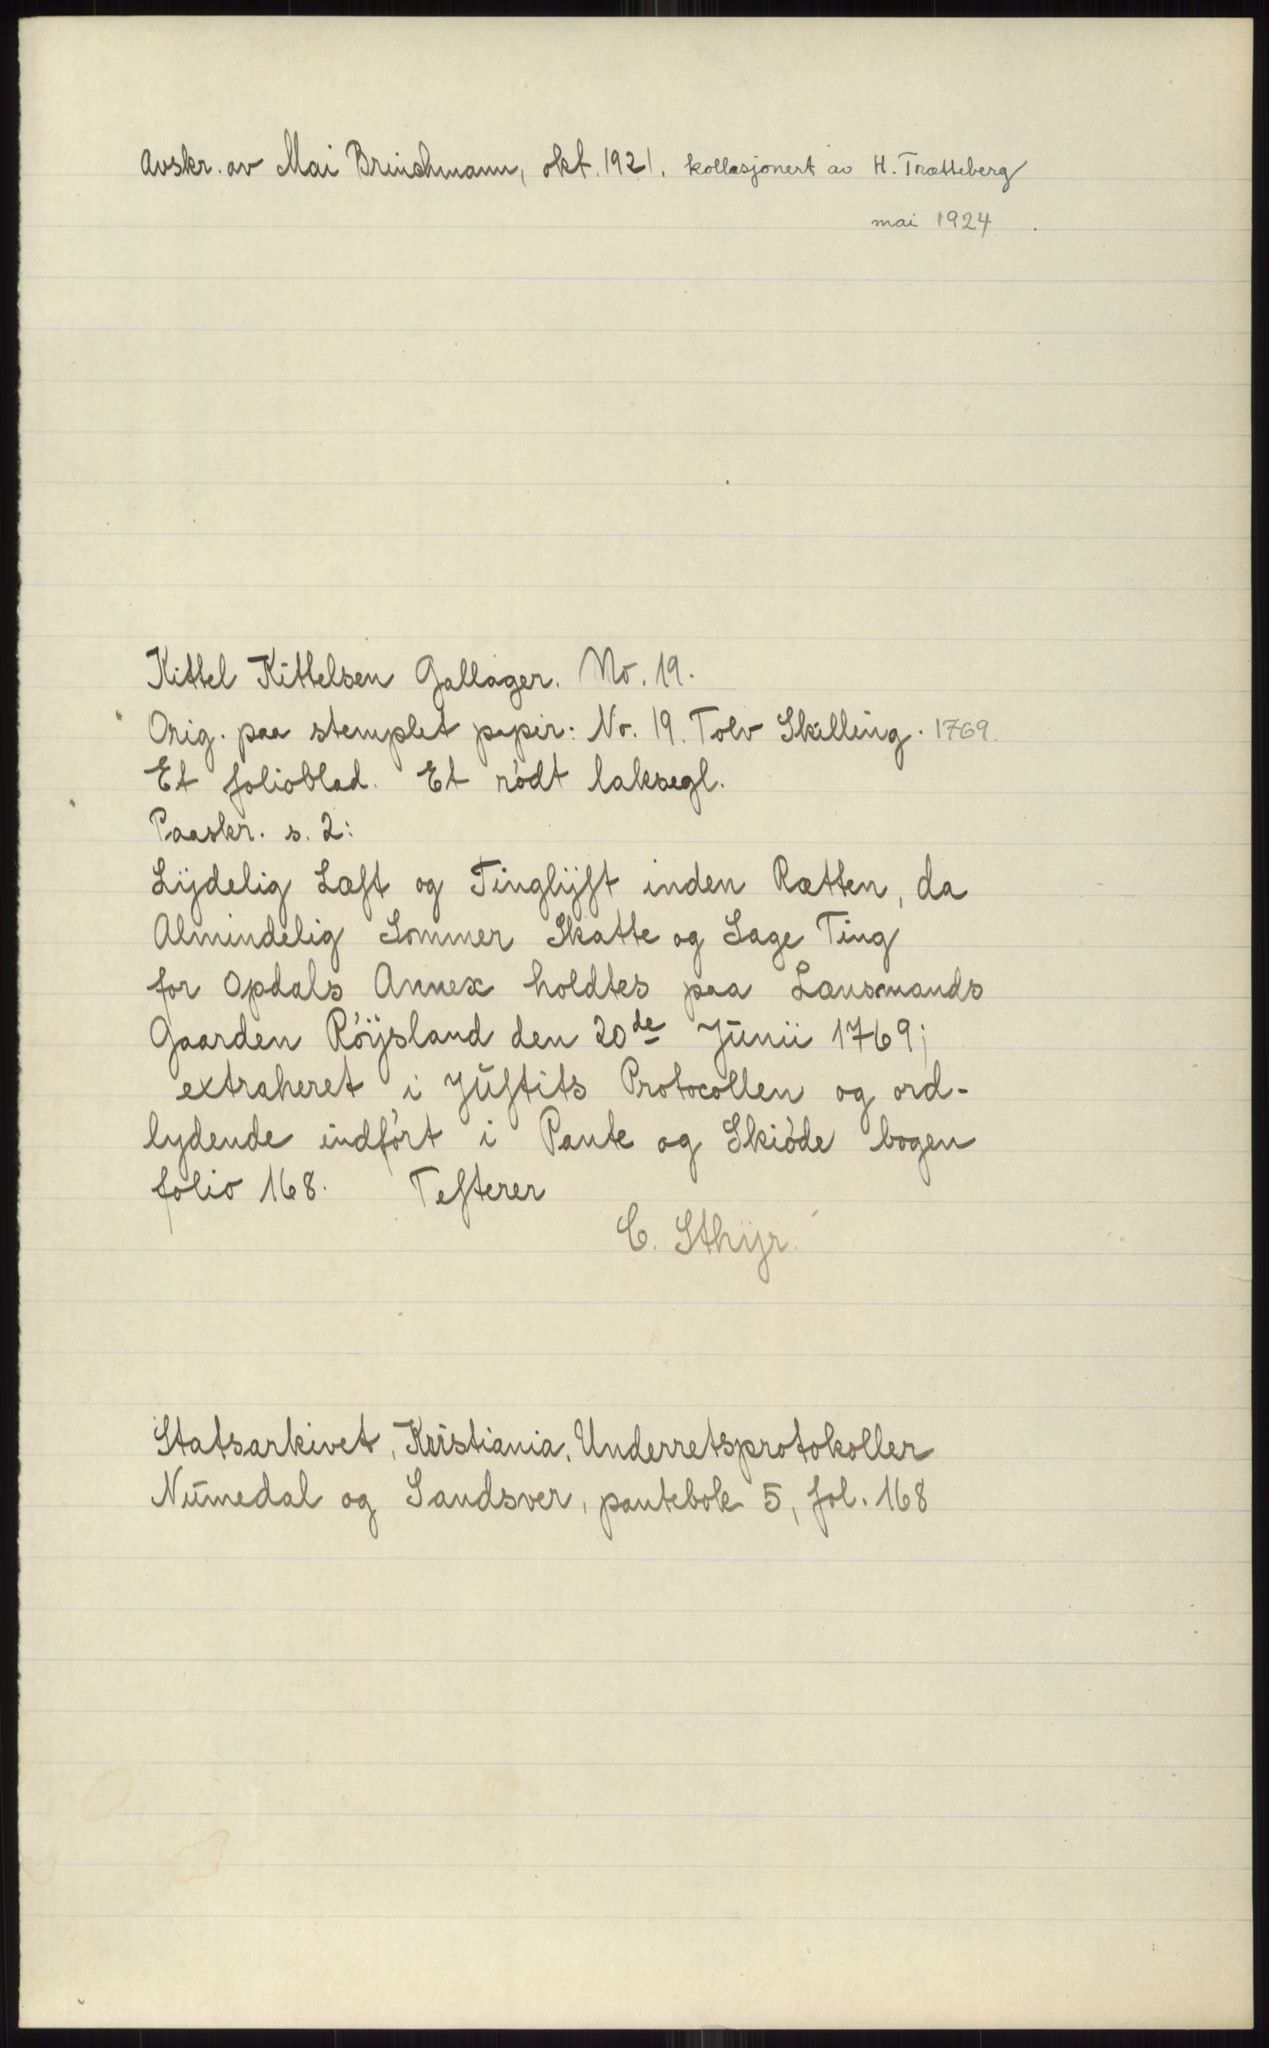 Avskr. av Mai Brinchmann, okt. 1921. kollasjonert av H. Trætteberg
mai 1924.
Kittel Kittelsen Gallager. No. 19.
Orig. paa stemplet papir: No. 19. Tolv Skilling. 1769.
Et folioblad. Et rödt laksegl.
Paaskr. s. 2:
Lÿdelig Læst og Tinglÿst inden Rætten, da
Almindelig Sommer Skatte og Sage Ting
for Opdals Annex holdtes paa Lænsmands
Gaarden Röÿsland den 20de Junii 1769;
extraheret i Justits Protocollen og ord-
lydende indfört i Pante og Skiöde bogen
folio 168. Testerer
C. Sthÿr.
Statsarkivet, Kristiania, Underretsprotokoller
Numedal og Sandsver, pantebok 5, fol. 168